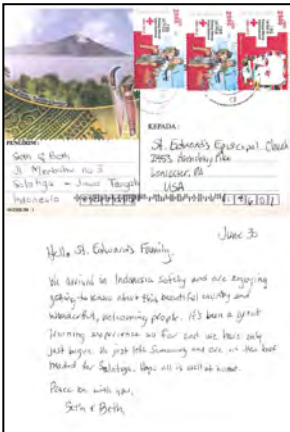 PENGIRIM :
Seth & Beth
Jl. Merbabu no 3
Salatiga - Jawa Tengah
Indonesia
KEPADA :
St. Edward's Episcopal Church
2453 Harrisburg Pike
Lancaster, PA
USA
June 30
Hello St. Edward's Family,
We arrived in Indonesia safely and are enjoying
getting to know about this beautiful country and
wonderful, welcoming people. It's been a great
learning experience so far and we have only
just begun. We just left Semarang and are on the
headed for Salatiga. Hope all is well at home.
Peace be with you,
Seth & Beth